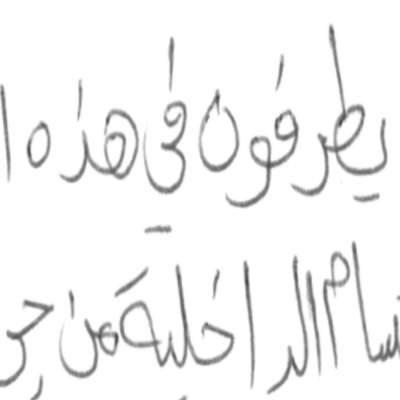 يطرفون في هذه ا
سام الداخلية من